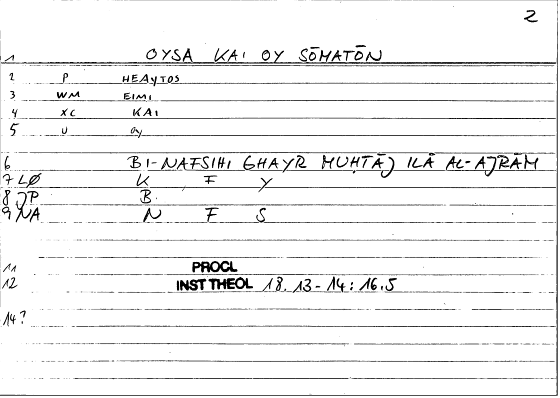 2
1 OYSA KAI OY SŌMATŌN
2 P HEAYTOS
3 WM EIMI
4 XC KAI
5 U Oy
6 BI-NAFSIHI GHAYR MUḤTĀJ ILĀ AL-AJRĀM
7 LØ K F Y
8 JP B
9 NA N F S
11 PROCL
12 INST THEOL 18.13-14: 16.5
14?